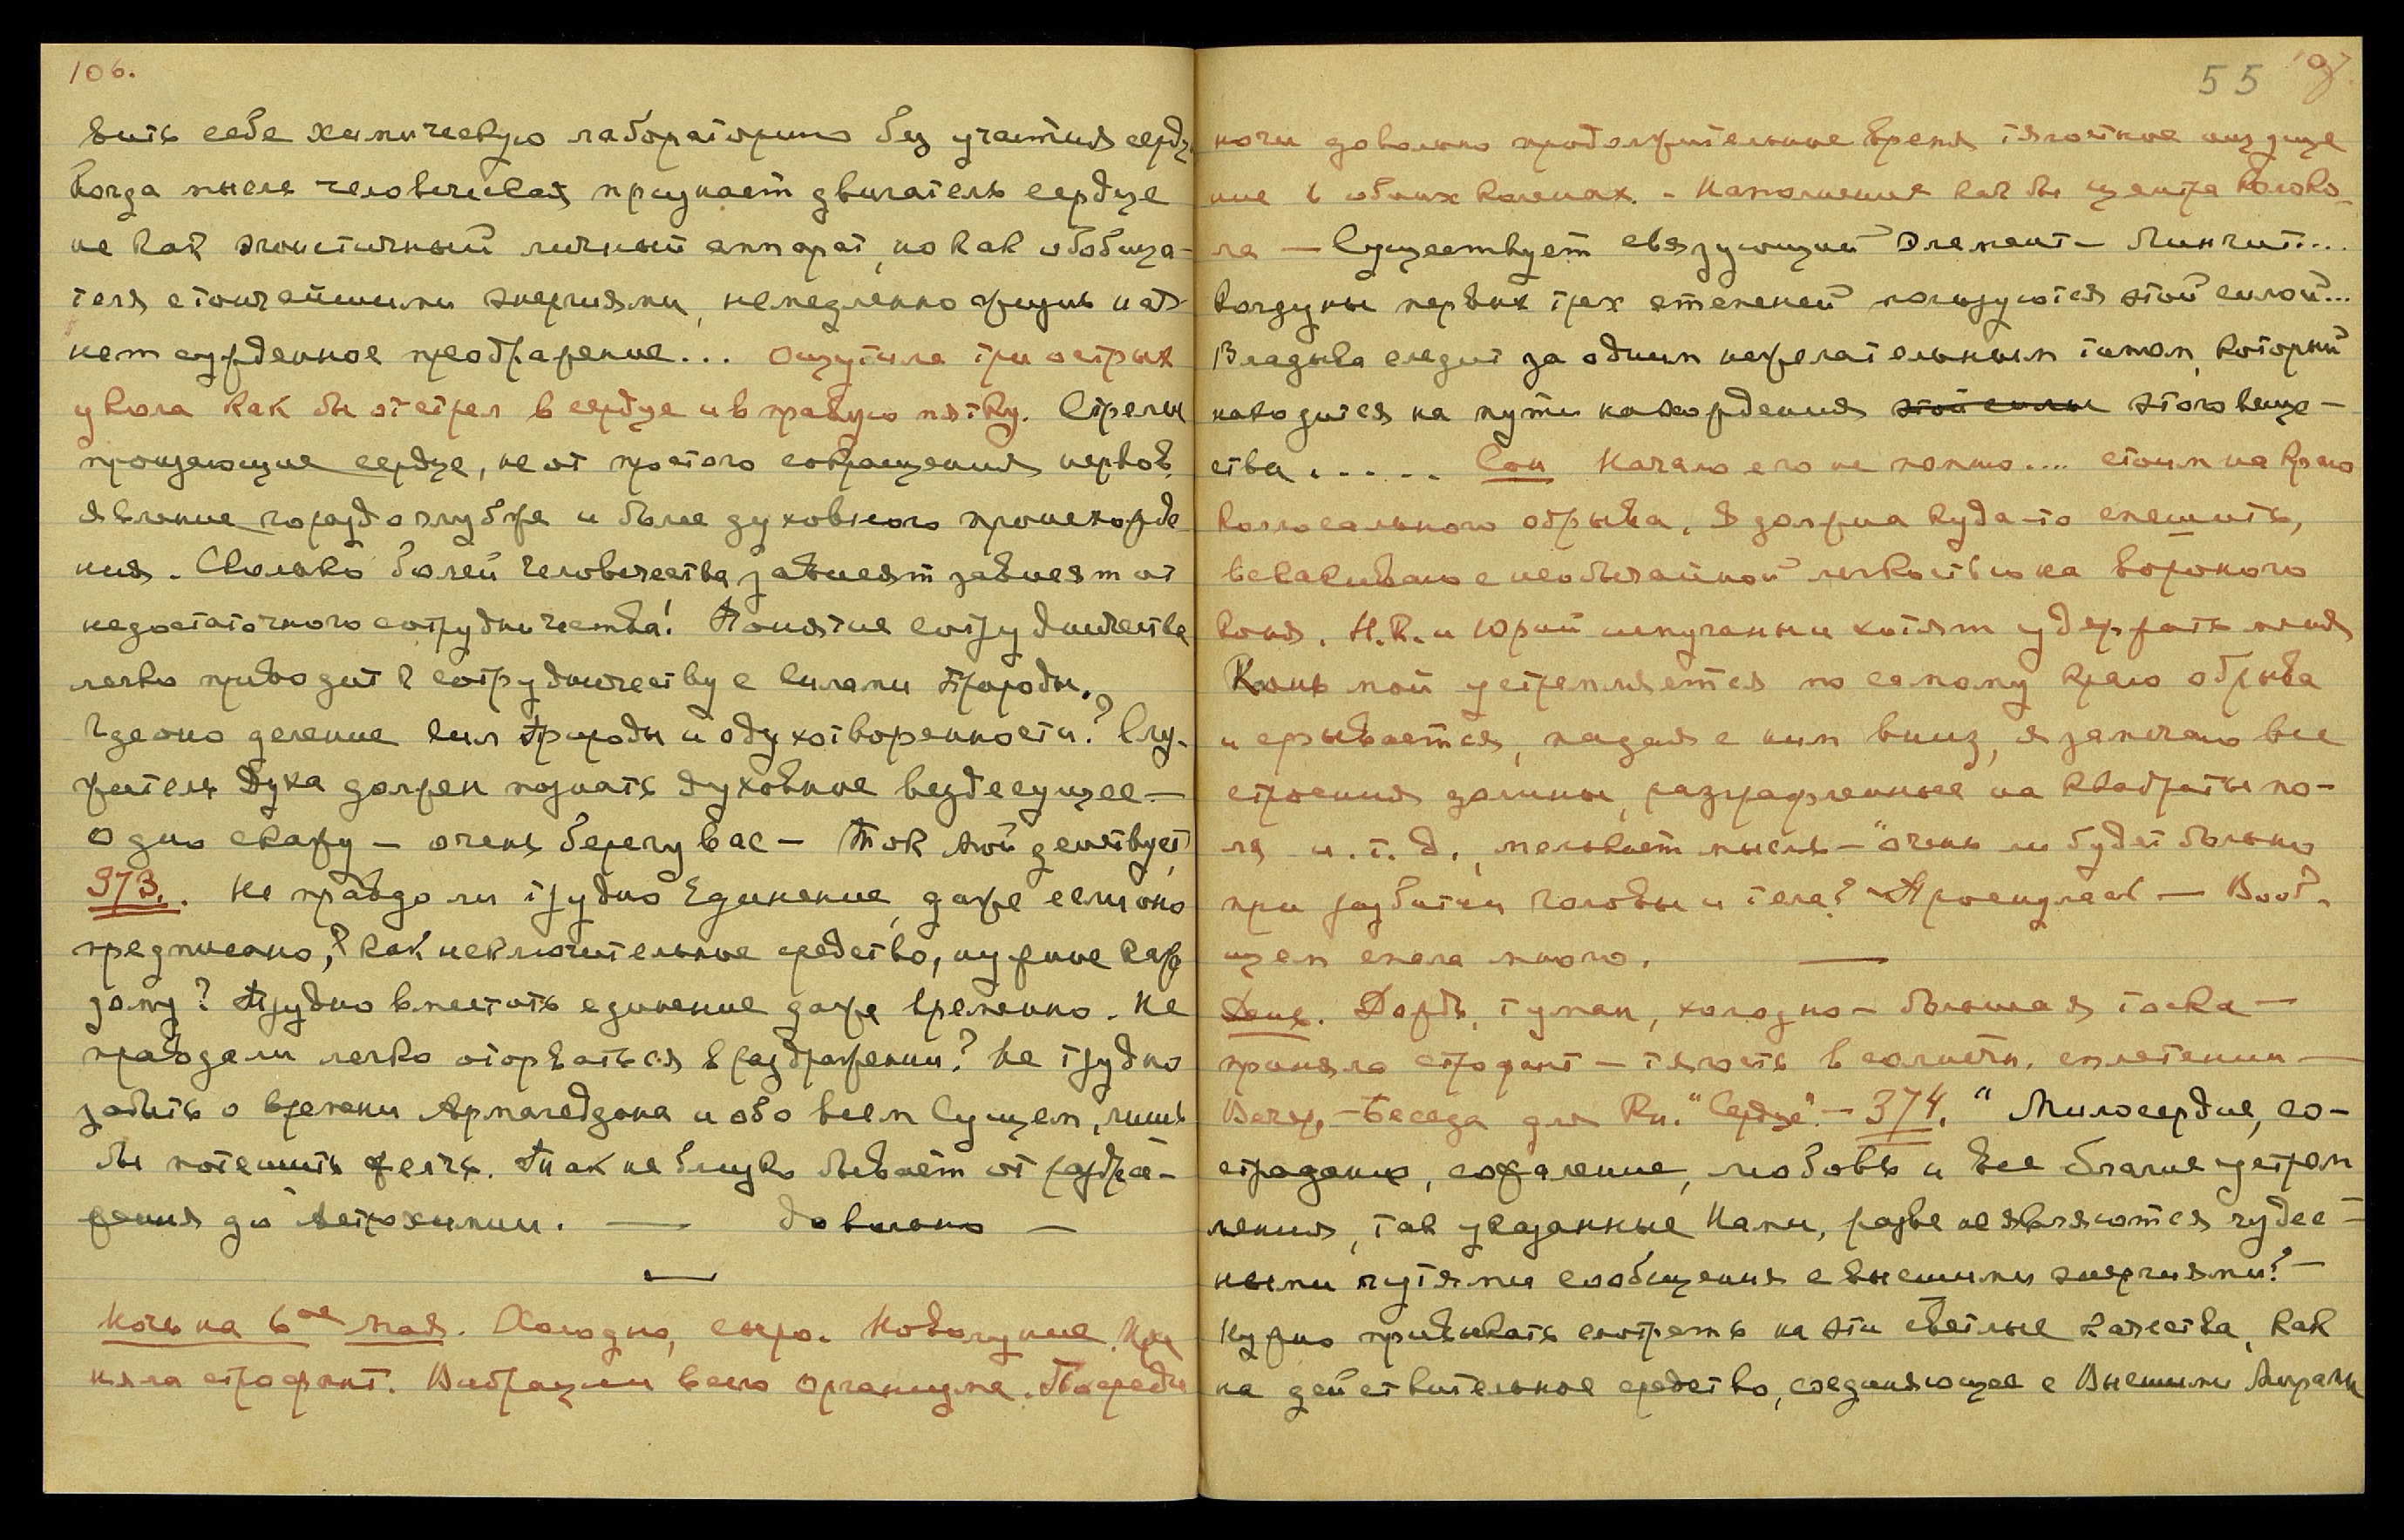 106.
вить себе химическую лабораторию без участия сердц
Когда мысль человеческая признает двигатель сердце
не как эгоистичный личный аппарат, но как обобща-
теля с тончайшими энергиями, немедленно жизнь нач
нет сужденное преображение... Ощутила три острых
укола как бы от стрел в сердце и в правую пятку. Стрелы
пронзающие сердце, не от простого сокращения нервов,
явление гораздо глубже и более духовного происхожде
ния. Сколько болей человечества зависят зависят от
недостаточного сотрудничества! Понятие сотрудничества
легко приводит к сотрудничеству с силами Природы.
Где оно деление сил Природы и одухотворенности? Слу-
житель Духа должен познать духовное вездесущее —
Одно скажу — очень берегу вас — Ток Мой действует
373.. Не правда ли трудно Единение, даже если оно
предписано, как исключительное средство, нужное каж
дому? Трудно вместить единение даже временно. Не
правда ли легко оторваться в раздражении? Не трудно
забыть о времени Армагеддона и обо всем Сущем, лишь
бы потешить желчь. Так не близко бывает от раздра-
жения до Астрохимии. — довольно —
Ночь на 6ое мая. Холодно, сыро. Новолуние. При
няла строфант. Вибрации всего организма. Посреди
55 107.
ночи довольно продолжительное время тягостное ощуще
ние в обоих коленах. - Напоминание как бы центра Колоко-
ла — Существует связующий элемент —
Колдуны первых трех степеней пользуются этой силой...
Владыка следит за одним нежелательным типом, который
находится на пути нахождения этой силы этого веще-
ства..... Сон Начало его не помню.... стоим на краю
колоссального обрыва, я должна куда-то спешить,
вскакиваю с необычайной легкостью на вороного
коня. Н.К. и Юрий испуганы и хотят удержать меня
Конь мой устремляется по самому краю обрыва
и срывается, падая с ним вниз, я замечаю все
строения долины, разграфленные на квадраты по-
ля и.т.д., мелькает мысль — "очень ли будет больно
при разбитии головы и тела?" Проснулась — Вооб-
щем спала много. —
День. Дождь, туман, холодно — большая тоска —
приняла строфант — тягость в солнечн. сплетении —
Вечер, — Беседа для Кн. "Сердце" — 374. "Милосердие, со-
страдание, сожаление, любовь и все благие устрем
ления, так указанные Нами, разве не являются чудес-
ными путями сообщения с высшими энергиями? —
Нужно привыкать смотреть на эти светлые качества, как
на действительное средство, соединяющее с Высшими Мирами